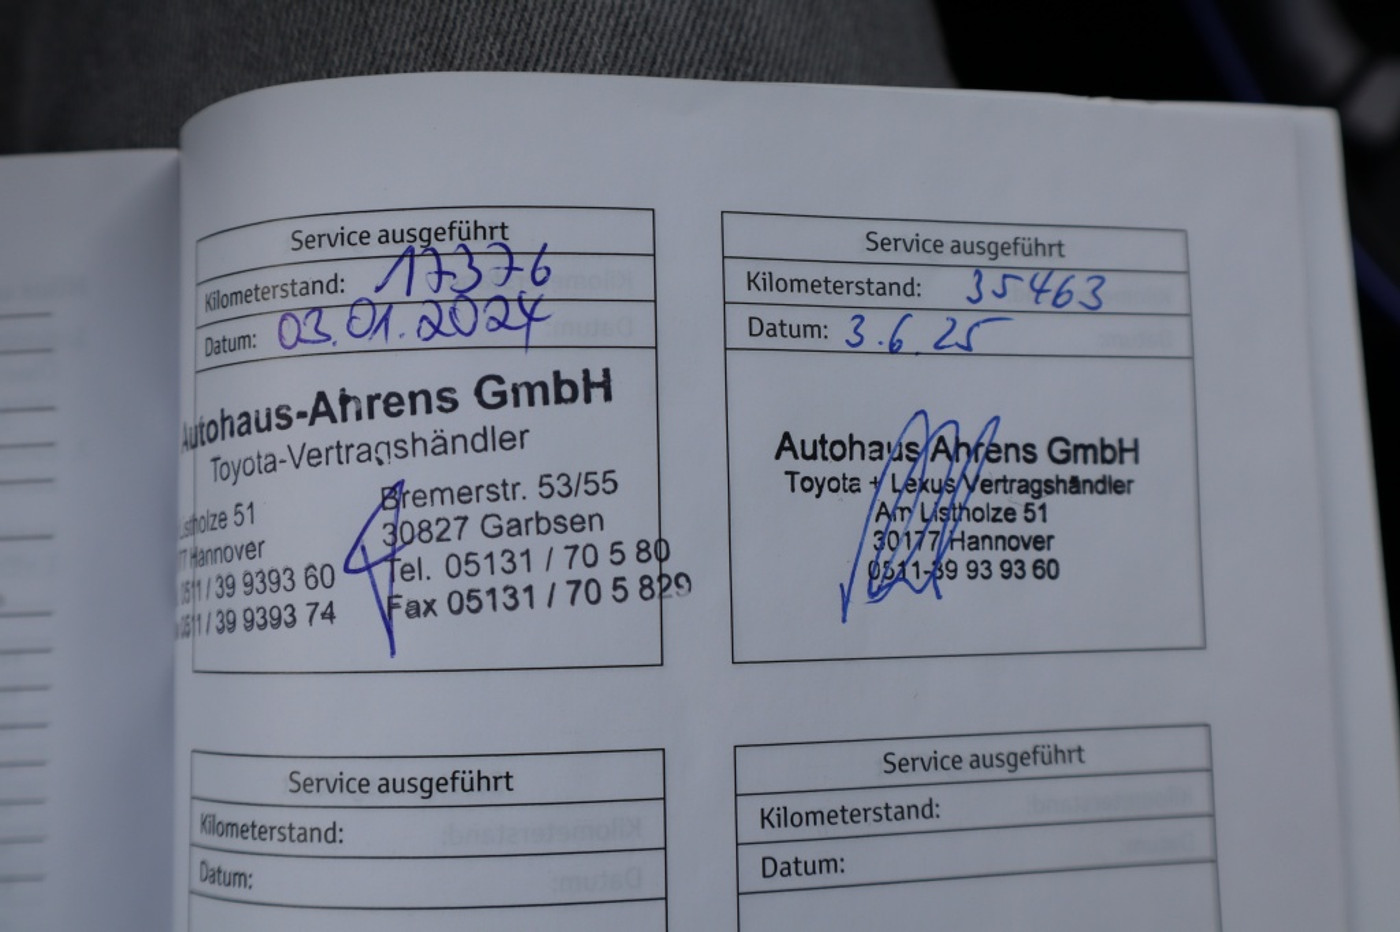 Service ausgeführt
Kilometerstand: 17376
Datum: 03.01.2024
Autohaus-Ahrens GmbH
Toyota-Vertragshändler
Listholze 51
Hannover
0511 / 39 9393 60
0511 / 39 9393 74
Bremerstr. 53/55
30827 Garbsen
Tel. 05131 / 70 5 80
Fax 05131 / 70 5 829
Service ausgeführt
Kilometerstand: 35463
Datum: 3.6.25
Autohaus Ahrens GmbH
Toyota + Lexus Vertragshändler
Am Listholze 51
30177 Hannover
0511-39 93 93 60
Service ausgeführt
Kilometerstand:
Datum:
Service ausgeführt
Kilometerstand:
Datum: